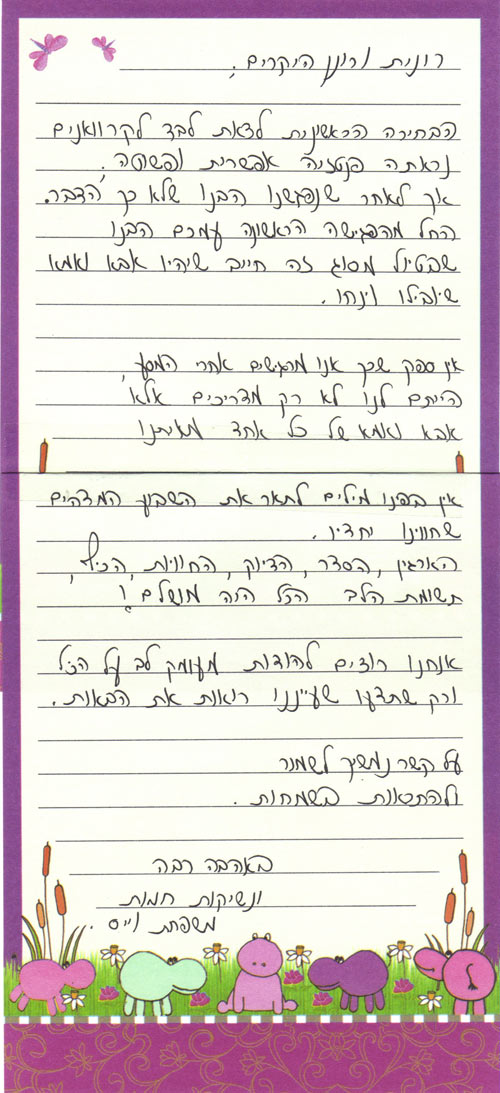 רונית ורונן היקרים,
הבחירה הראשונית לצאת לבד לקרוואנים
נראתה פנטזיה אפשרית ופשוטה.
אך לאחר שנפגשנו הבנו שלא כך הדבר.
החל מהפגישה הראשונה עמכם הבנו
שבטיול מסוג זה חייב שיהיו אבא ואמא
שיובילו וינחו.
אין ספק שכך אנו מרגישים אחרי המסע,
הייתם לנו לא רק מדריכים אלא
אבא ואמא של כל אחד מאיתנו
אין בפנו מילים לתאר את השבוע המדהים
שחווינו יחדיו.
הארגון, הסדר, הדיוק, החוויות, הכיף,
תשומת הלב הכל היה מושלם!
אנחנו רוצים להודות מעומק לב על הכל
ורק שתדעו שעיננו רואות את הבאות.
על קשר נמשיך לשמור
ולהתראות בשמחות.
באהבה רבה
ונשיקות חמות
משפחת וייס.